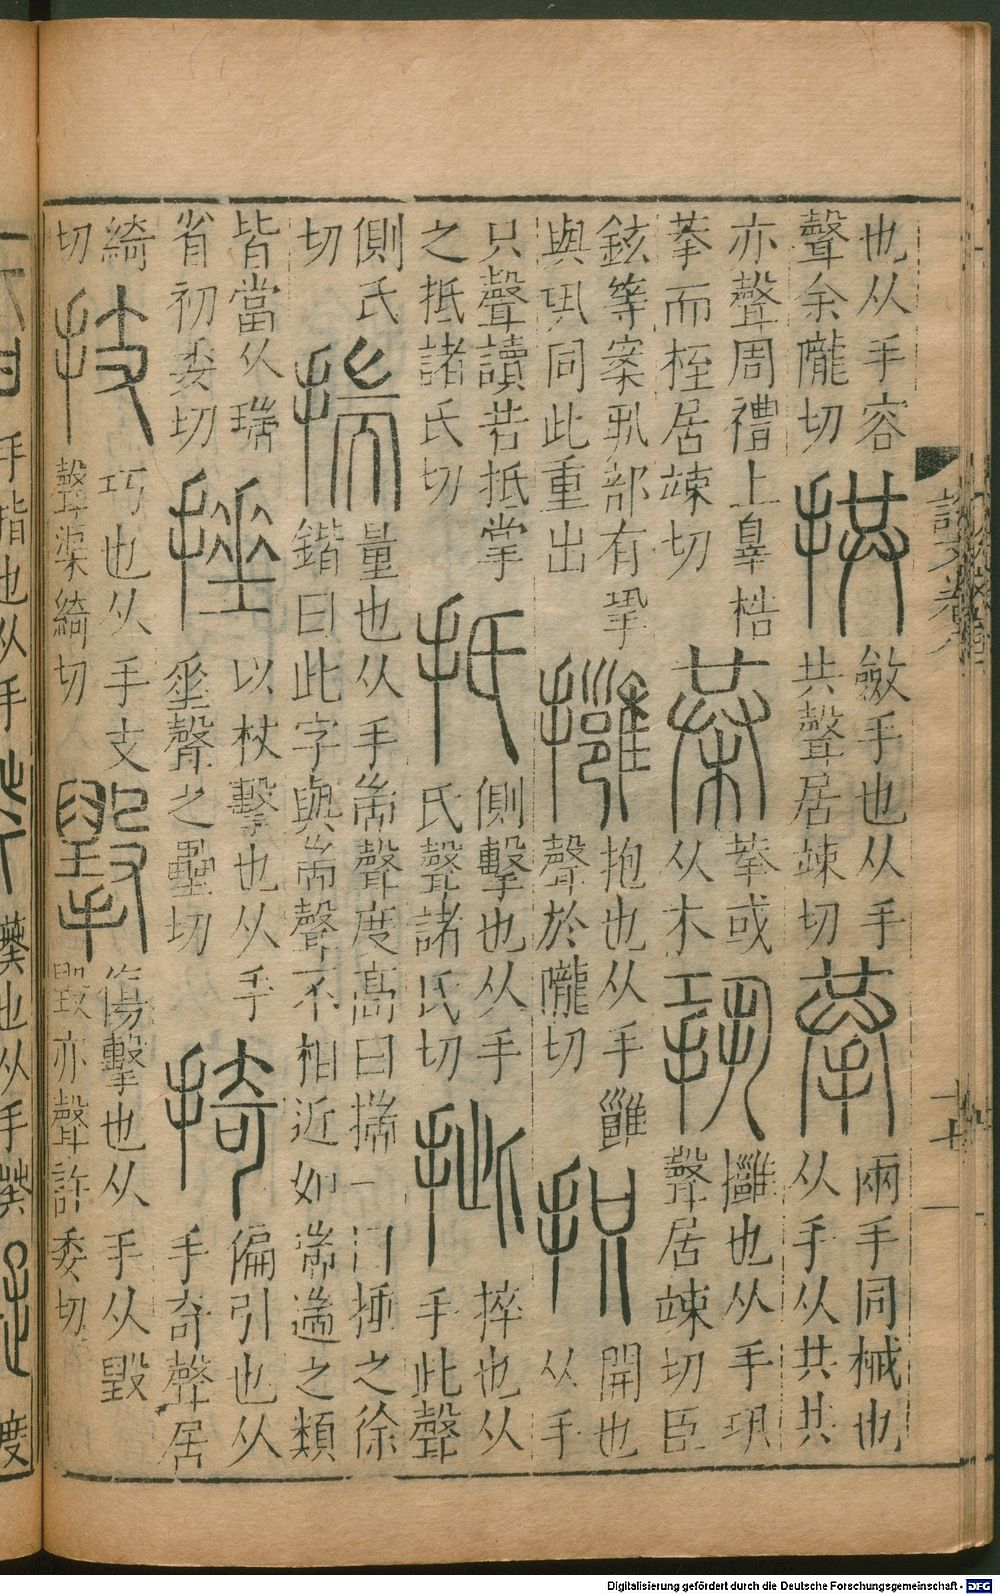 也从手容聲余隴切 拱 斂手也从手共聲居竦切 拲 兩手同械也从手从共共
亦聲周禮上辠梏拲而桎居竦切 拲或从木 㧬 擁也从手巩聲居竦切臣
鉉等案丮部有鞏與巩同此重出 擁 抱也从手雝聲於隴切 抧 開也从手
只聲讀若抵掌之抵諸氏切 扺 側擊也从手氏聲諸氏切 㧗 捽也从手此聲
側氏切 揣 量也从手耑聲度高曰揣一曰捶之徐鍇曰此字與耑聲不相近如喘遄之類
皆當从瑞省初委切 捶 以杖擊也从手垂聲之壘切 掎 偏引也从手奇聲居
綺切 技 巧也从手支聲渠綺切 擊 傷擊也从手从毀毀亦聲許委切
十七
Digitalisierung gefördert durch die Deutsche Forschungsgemeinschaft - DFG